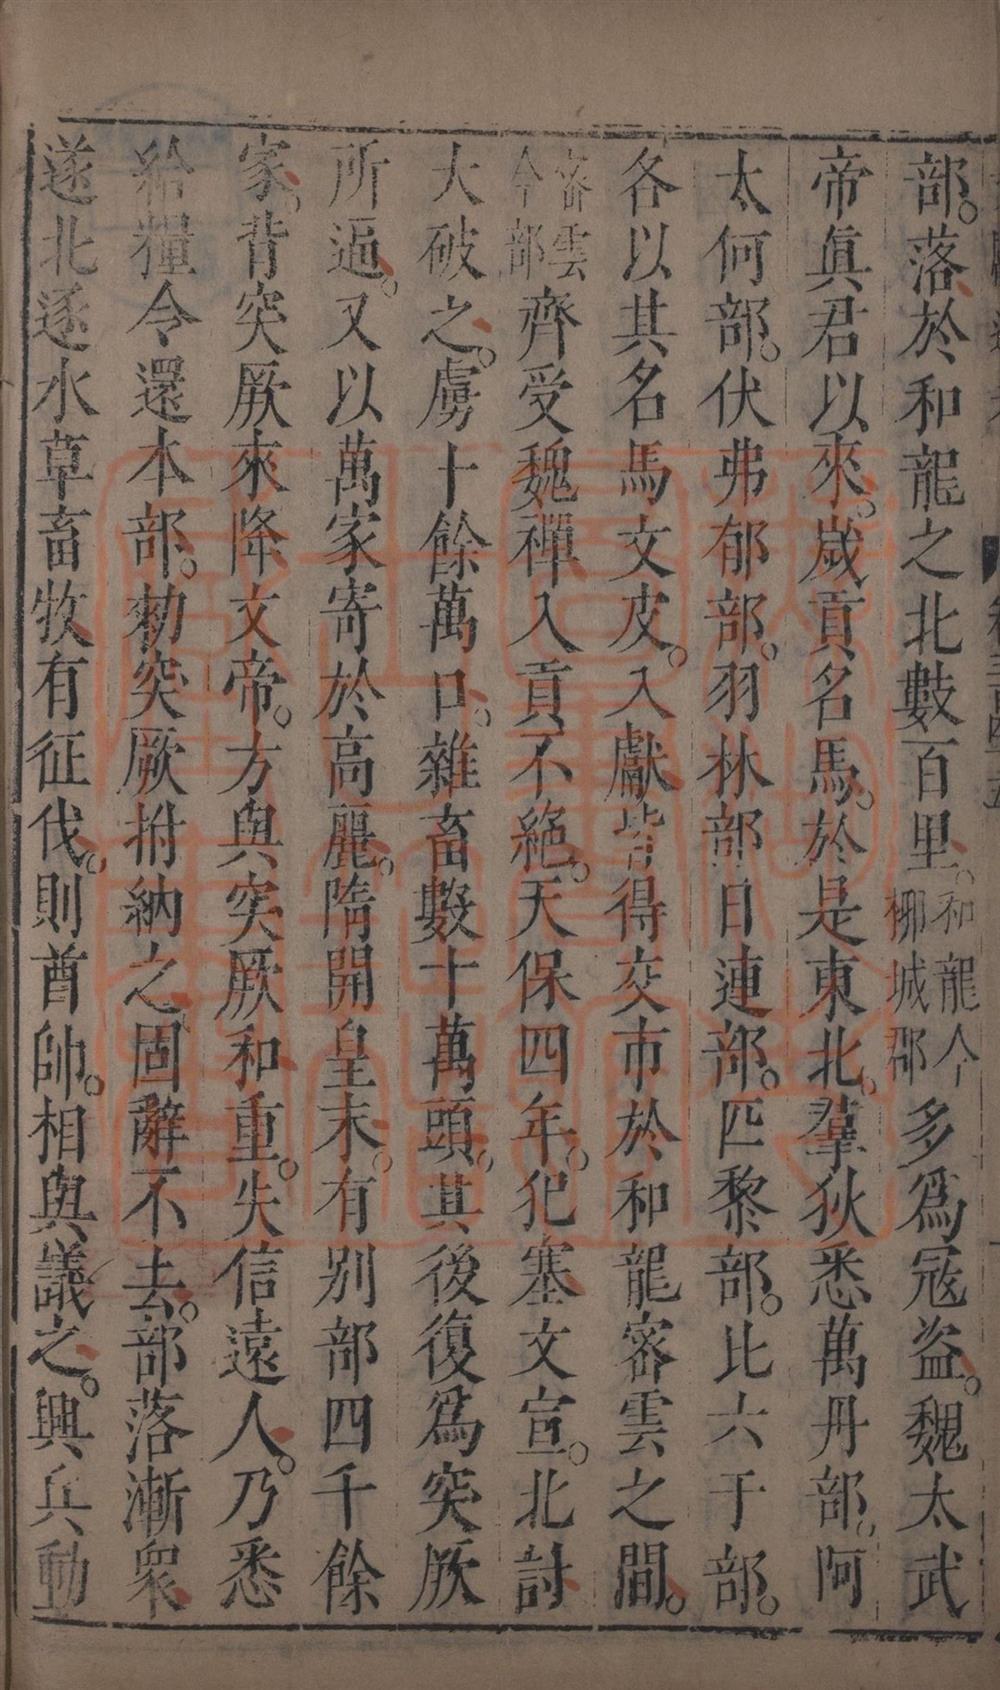 部落於和龍之北數百里和龍今柳城郡多爲寇盜魏太武
帝眞君以來歲貢名馬於是東北羣狄悉萬丹部阿
太何部伏弗郁部羽林部日連部匹黎部比六于部
各以其名馬文皮入獻皆得交市於和龍密雲之間
密雲今郡齊受魏禪入貢不絕天保四年犯塞文宣北討
大破之虜十餘萬口雜畜數十萬頭其後復爲突厥
所逼又以萬家寄於高麗隋開皇末有別部四千餘
家背突厥來降文帝方與突厥和重失信遠人乃悉
給糧令還本部勑突厥拊納之固辭不去部落漸衆
遂北逐水草畜牧有征伐則酋帥相與議之興兵動